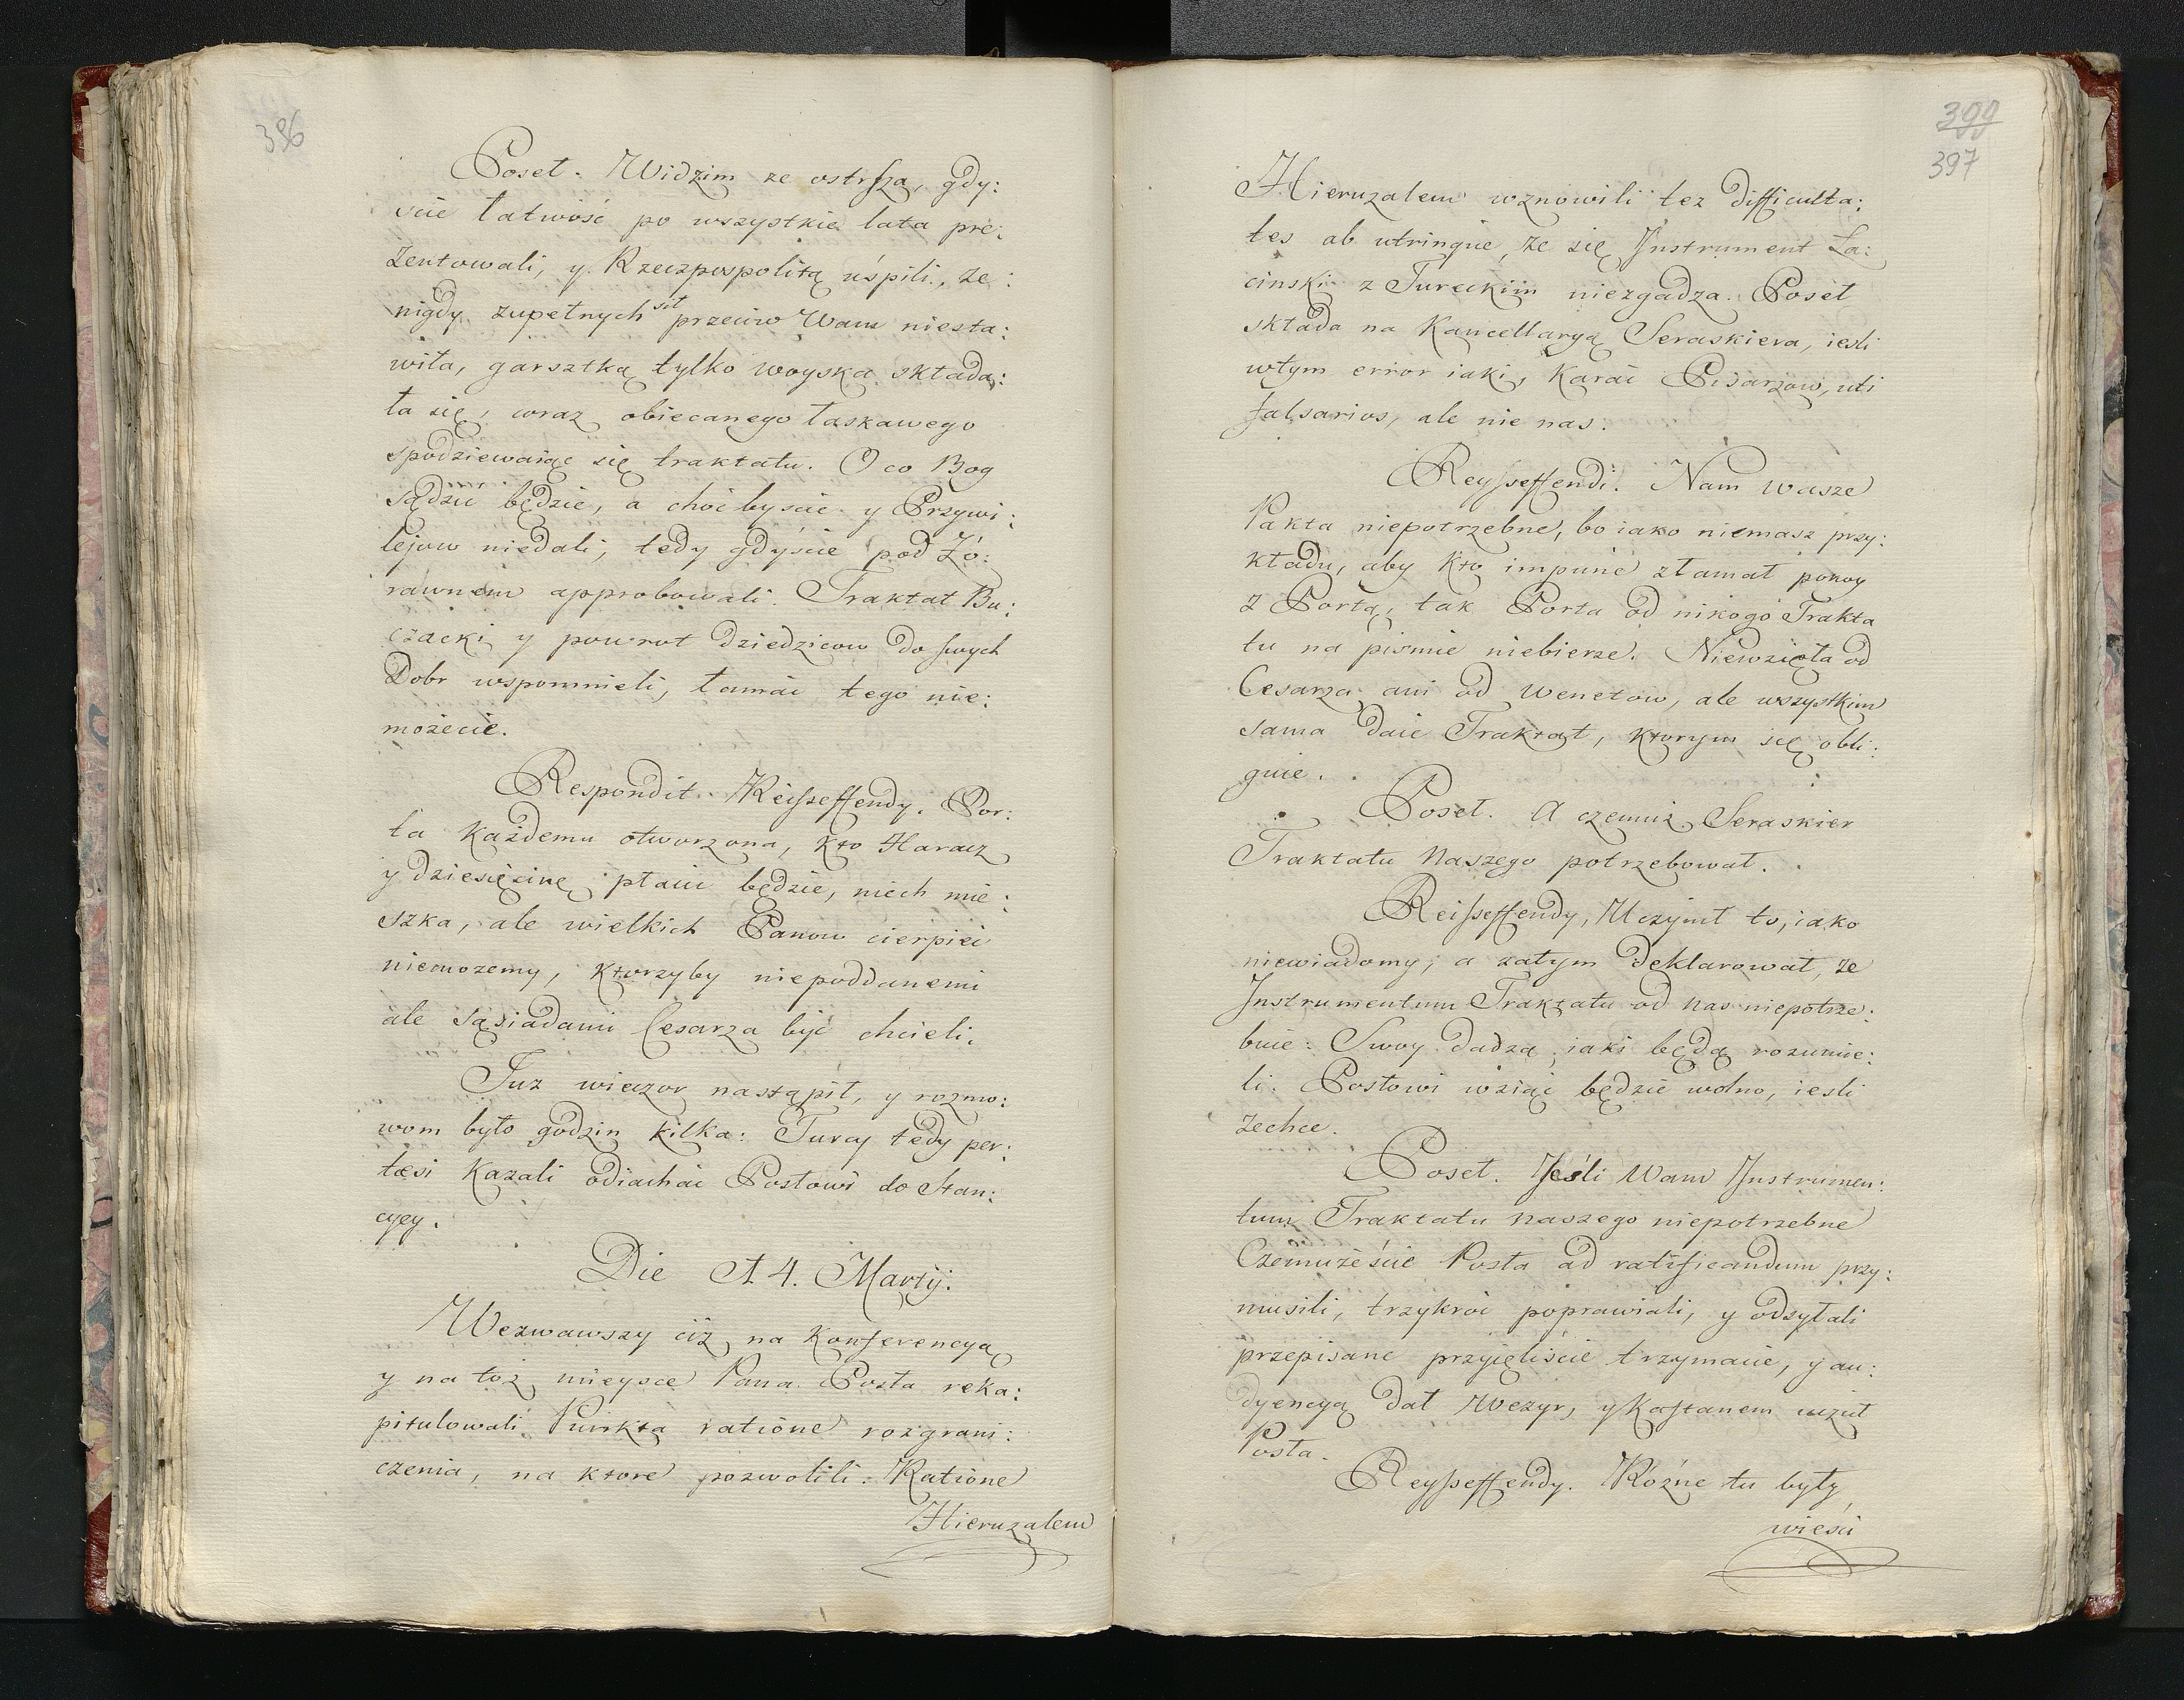 396
Poseł. Widzim ze ostrszą, gdy:
scie łatwość po wszystkie lata pre:
zentowali, y Rzeczpospolitą uśpili, ze:
nigdy zupełnych sił przeciw Wam niesta:
wiła, garsztką tylko woyska składa:
ła się, wraz obiecanego łaskawego
spodziewaiąc się traktatu. O co Bog
sądzić będzie, a choć byscie y Przywi:
lejow niedali, tedy gdyście pod Żo:
rawnem approbowali Traktat Bu:
czacki y powrot dziedzicow do swych
Dobr wspomnieli, łamać tego nie:
możecie.
Respondit Reisseffendy. Por:
ta Każdemu otworzona, kto Haracz
y dziesięcinę płacić będzie, niech mie:
szka, ale wielkich Panow cierpieć
niemozemy, ktorzyby niepoddanemi
ale sąsiadami Cesarza być chcieli.
Juz wieczor nastąpił, y rozmo:
wom było godzin kilka: Turcy tedy per:
tæsi Kazali odiachać Posłowi do Stan:
cyey.
Die 14. Martij.
Wezwawszy ciż na Konferencyą
y na toż mieysce Pana Posła reka:
pitulowali Punkta ratione rozgrani:
czenia, na ktore pozwolili. Ratione
Hieruzalem
399
397
Hieruzalem wznowili tez difficulta:
tes ab utringue, ze się Instrument Ła:
cinski z Tureckim niezgadza. Poseł
składa na Kancellaryą Seraskiera, iesli
wtym error iaki, Karać Pisarzow, uti
falsarios, ale nie nas.
Reysseffendi. Nam wasze
Pakta niepotrzebne, bo iako niemasz przy:
kładu, aby Kto impune złamał pokoy
z Portą, tak Porta od nikogo Trakta
tu na pismie niebierze. Niewzięła od
Cesarza, ani od Wenetow, ale wszystkim
sama daie Traktat, ktorym się obli:
guie.
Poseł. A czemuż Seraskier
Traktatu Naszego potrzebował.
Reisseffendy, Uczynił to, iako
niewiadomy, a zatym deklarował, ze
Instrumentum Traktatu od nas niepotrze:
buie: Swoy dadzą, iaki będą rozumie:
li. Posłowi wziąć będzie wolno, iesli
zechce.
Poseł. Jeśli Wam Instrumen:
tum Traktatu naszego niepotrzebne
Czemużeście Posła ad ratificandum przy:
musili, trzykroć poprawiali, y odsyłali
przepisane przyięliście trzymacie, y au:
dyencyą dał Wezyr, y Kaftanem uczcił
Posła.
Reysseffendy. Rożne tu były
wieści